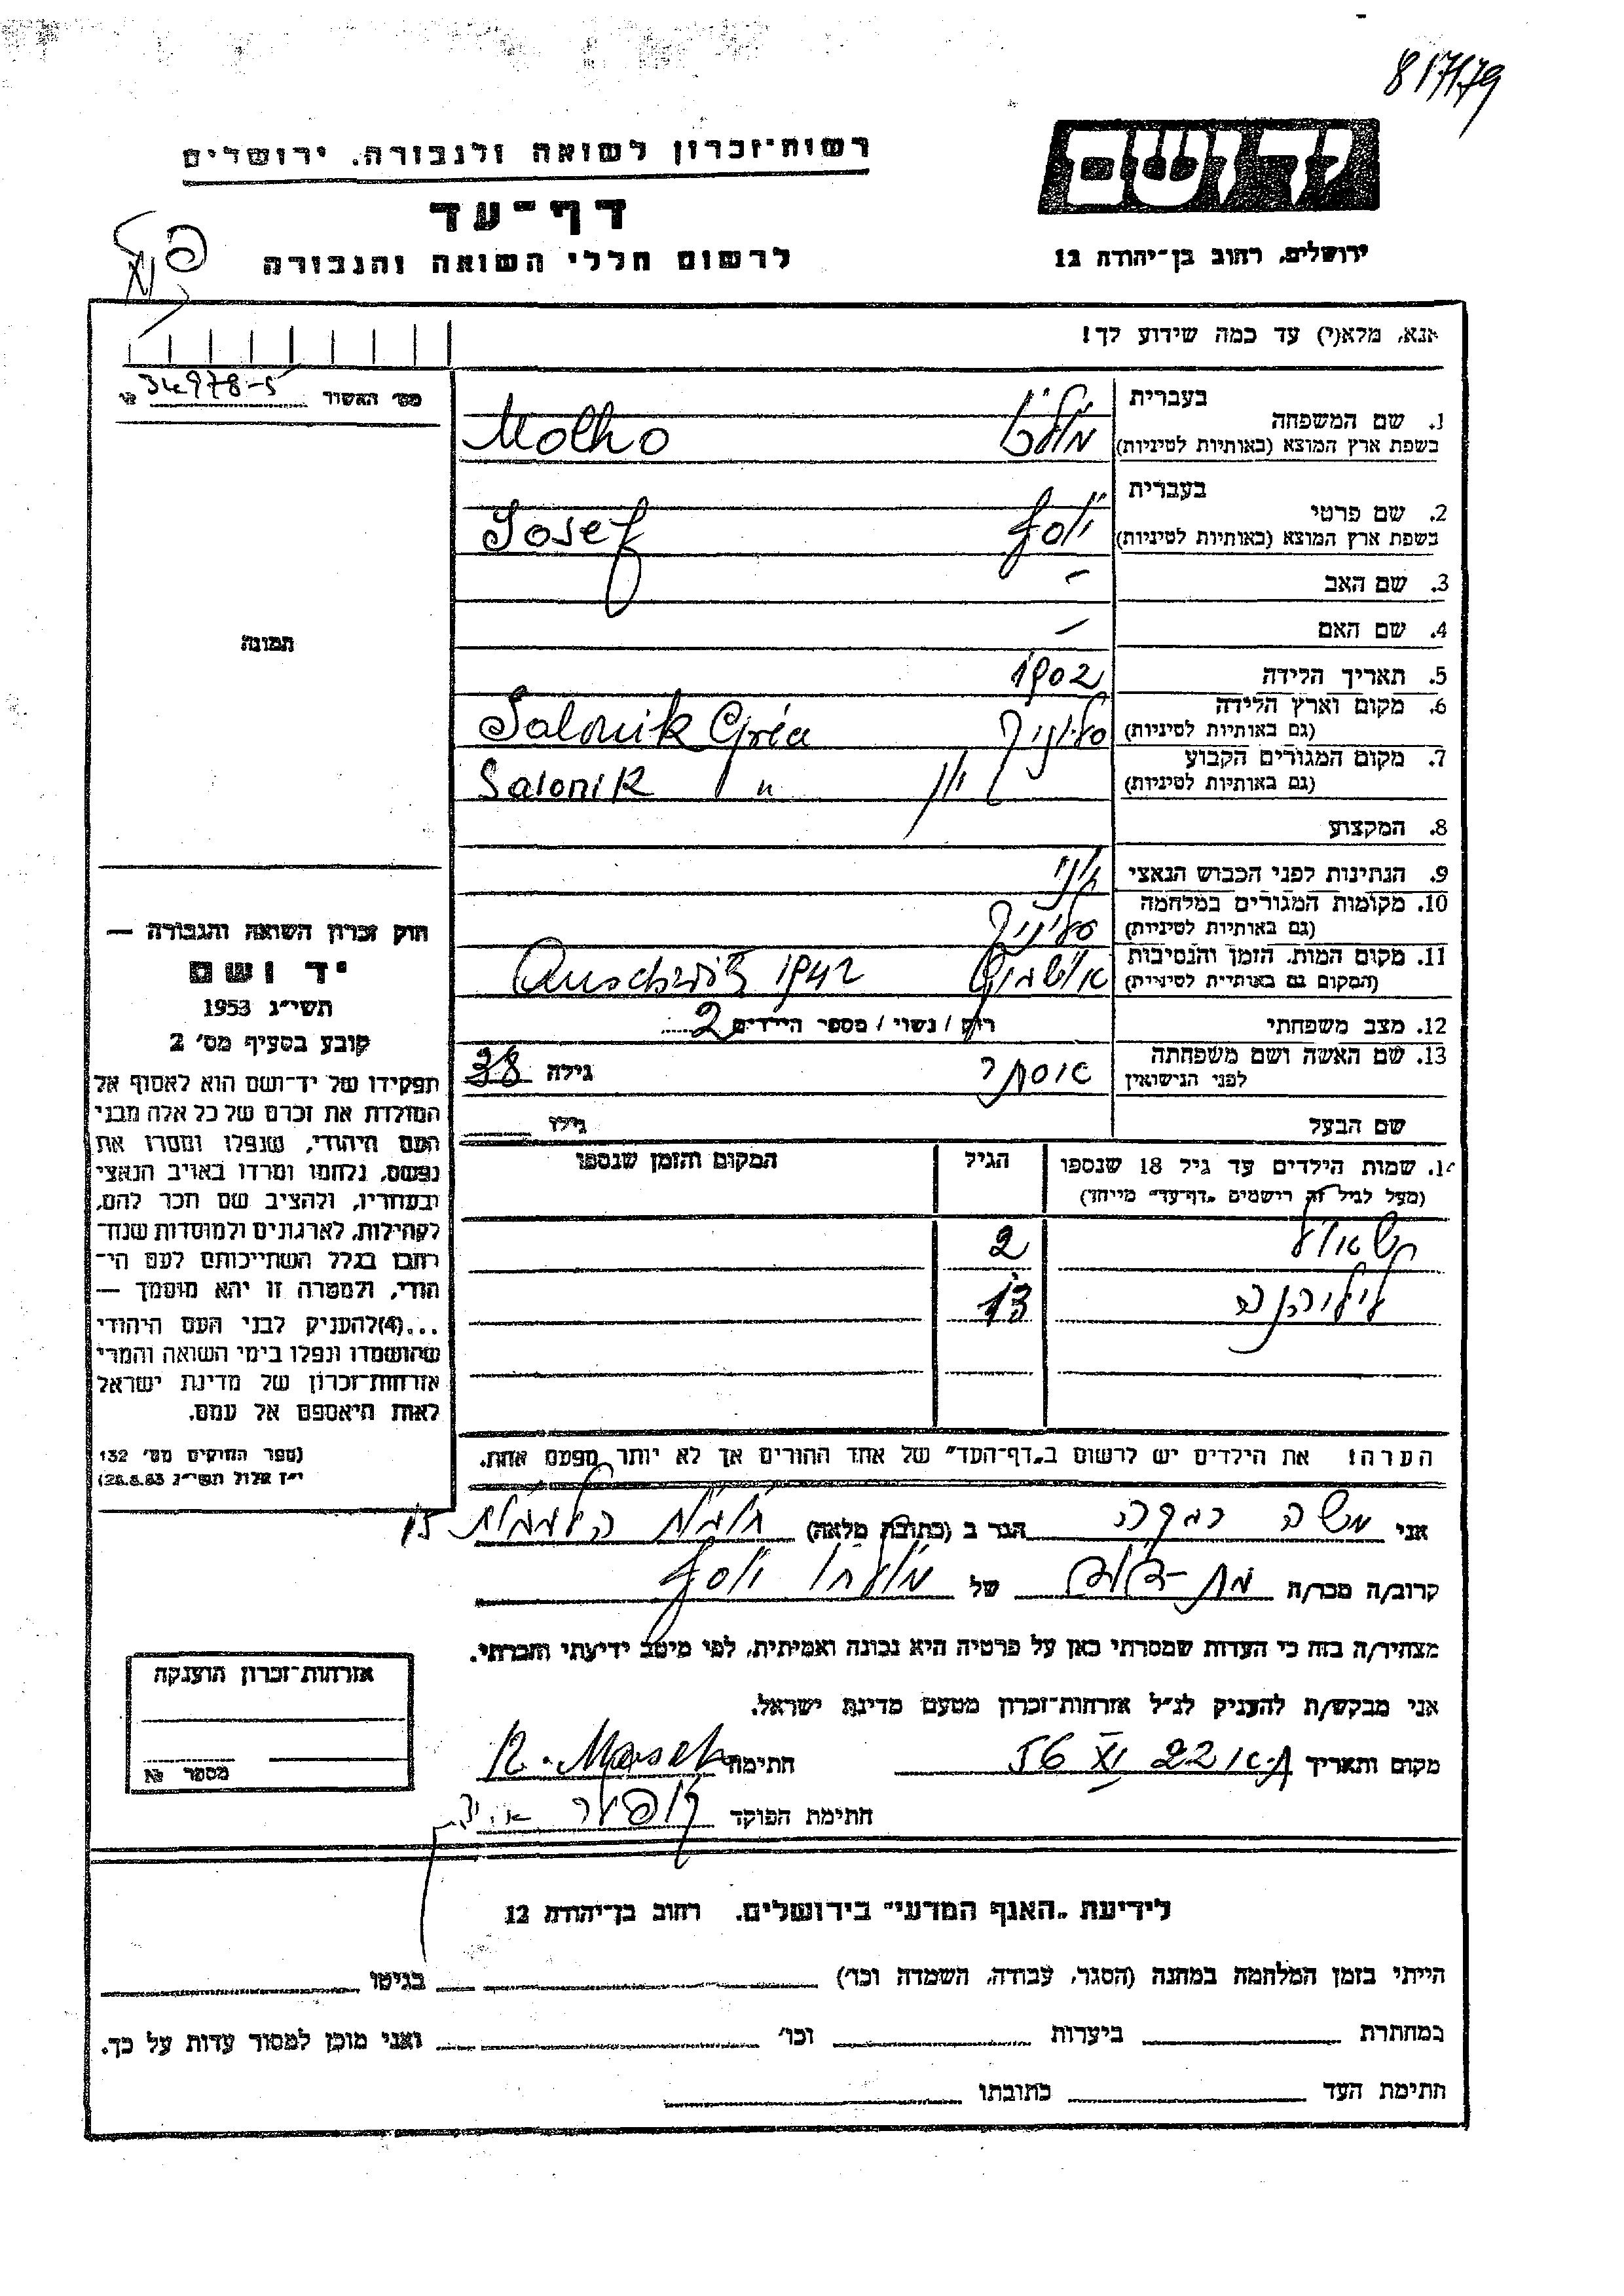 817179
רשות-זכרון לשואה ולגבורה, ירושלים
יד ושם
דף-עד
לרשום חללי השואה והגבורה
ירושלים, רחוב בן-יהודה 12
אנא, מלא(י) עד כמה שידוע לך!
מס' האשור № 34978-5
תמונה
1. שם המשפחה
בעברית
בשפת ארץ המוצא (באותיות לטיניות)
Molho
2. שם פרטי
בעברית יוסף
בשפת ארץ המוצא (באותיות לטיניות)
Josef
3. שם האב –
4. שם האם –
5. תאריך הלידה 1902
6. מקום וארץ הלידה
(גם באותיות לטיניות) סלוניקי Salonik
7. מקום המגורים הקבוע
(גם באותיות לטיניות) יון Salonik "
8. המקצוע
9. הנתינות לפני הכבוש הנאצי יוני
10. מקומות המגורים במלחמה
(גם באותיות לטיניות) סלוניקי
11. מקום המות, הזמן והנסיבות
(המקום גם באותיות לטיניות) אושוויץ 1942
12. מצב משפחתי רוק / נשוי / מספר הילדים 2
13. שם האשה ושם משפחתה
לפני הנישואין אסתר גילה 38
שם הבעל גילו
14. שמות הילדים עד גיל 18 שנספו
(מעל לגיל זה רישמים "דף-עד" מייחד)
הגיל
המקום והזמן שנספו
2
13
הערה! את הילדים יש לרשום ב"דף-העד" של אחד ההורים אך לא יותר מפעם אחת.
חוק זכרון השואה והגבורה —
יד ושם
תשי"ג 1953
קובע בסעיף מס' 2
תפקידו של יד-ושם הוא לאסוף אל
המולדת את זכרם של כל אלה מבני
העם היהודי, שנפלו ומסרו את
נפשם, נלחמו ומרדו באויב הנאצי
ובעוזריו, ולהציב שם וזכר להם,
לקהילות, לארגונים ולמוסדות שנח-
רבו בגלל השתייכותם לעם הי-
הודי, ולמטרה זו יהא מוסמך —
...(4)להעניק לבני העם היהודי
שהושמדו ונפלו בימי השואה והמרי
אזרחות-זכרון של מדינת ישראל
לאות היאספם אל עמם.
(ספר החוקים מס' 132
י"ז אלול תשי"ג 28.8.53)
אני משה רבקה הגר ב (כתובת מלאה) חומת
קרוב/ה מכר/ה של מולכו יוסף
מצהיר/ה בזה כי העדות שמסרתי כאן על פרטיה היא נכונה ואמיתית, לפי מיטב ידיעתי והכרתי.
אני מבקש/ת להעניק לנ"ל אזרחות-זכרון מטעם מדינת ישראל.
מקום ותאריך ת"א 22 XI 56 חתימה
חתימת הפוקד
אזרחות-זכרון הוענקה
מספר №
לידיעת "האגף המדעי" בירושלים, רחוב בן-יהודה 12
הייתי בזמן המלחמה במחנה (הסגר, עבודה, השמדה וכד') בגיטו
במחתרת ביערות וכו' ואני מוכן למסור עדות על כך.
חתימת העד כתובתו